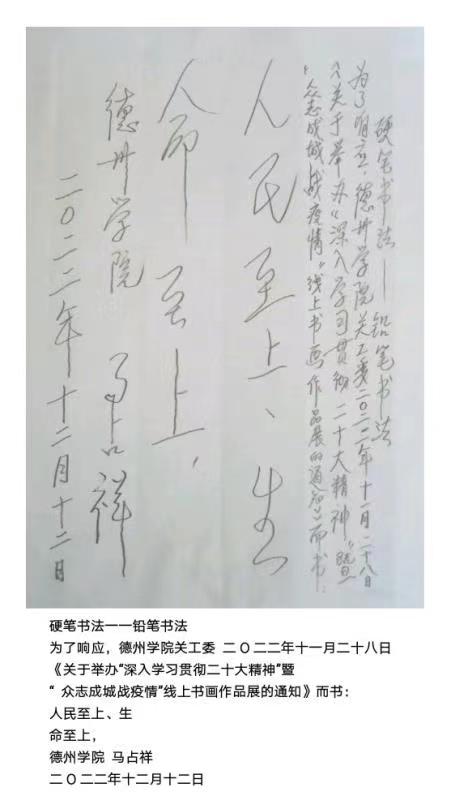 硬笔书法——铅笔书法
为了响应，德州学院关工委二〇二二年十一月二十八日
《关于举办“深入学习贯彻二十大精神”暨
“众志成城战疫情”线上书画作品展的通知》而书：
人民至上、生
命至上，
德州学院 马占祥
二〇二二年十二月十二日
硬笔书法一一铅笔书法
为了响应，德州学院关工委 二 O 二二年十一月二十八日
《关于举办“深入学习贯彻二十大精神”暨
“ 众志成城战疫情”线上书画作品展的通知》而书：
人民至上、生
命至上，
德州学院 马占祥
二 O 二二年十二月十二日